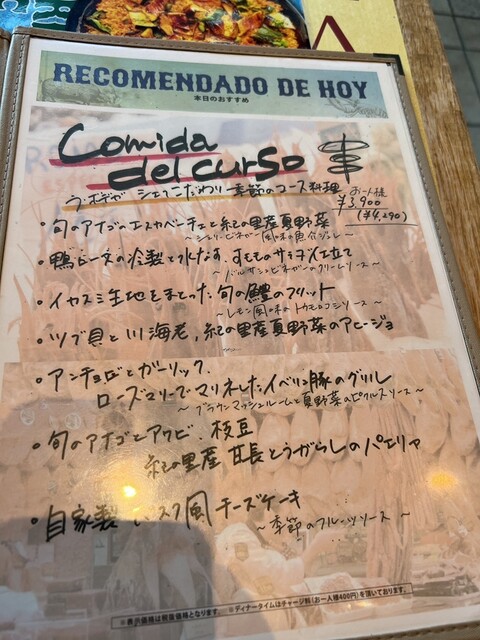 RECOMENDADO DE HOY
本日のおすすめ
Comida
del curso
ラ・ボデガ シェフこだわり 季節のコース料理
お一人様
¥3,900
(¥4,290)
・旬のアナゴのエスカベーチェと紀の里産夏野菜
～シェリービネガー風味の魚介ジュレ～
・鴨ビーフの冷製と水なす、すもものサラダ仕立て
～バルサミコビネガーのクリームソース～
・イカスミ生地をまとった旬の鱧のフリット
～レモン風味のトウモロコシソース～
・ツブ貝と川海老、紀の里産夏野菜のアヒージョ
・アンチョビとガーリック、
ローズマリーでマリネしたイベリコ豚のグリル
～ブラウンマッシュルームと夏野菜のピクルスソース～
・旬のアナゴとアワビ、枝豆
紀の里産 甘長とうがらしのパエリャ
・自家製 バスク風チーズケーキ
～季節のフルーツソース～
※表示価格は税抜価格となります。 ※ディナータイムはチャージ料(お一人様400円)を頂いております。